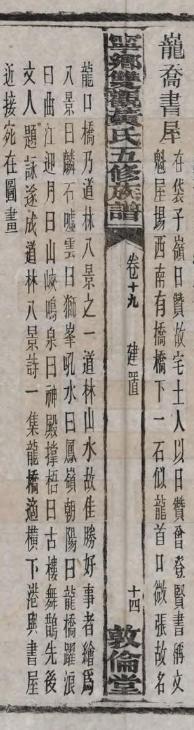 龍喬書屋
在袋子嶺日贊故宅土人以日贊會登賢書稱文
魁屋揚西南有橋橋下一石似龍首口微張故名
寧鄉雙觀黃氏五修族譜
卷十九
建置
十四
敦倫堂
龍口橋乃道林八景之一道林山水故佳勝好事者繪爲
八景曰麟石噓雲曰獅峯吼水曰鳳嶺朝陽曰龍橋躍浪
曰曲江迎月曰山峽鳴泉曰神殿撐梧曰古樓舞鶴先後
文人題詠遂成道林八景詩一集龍橋適橫下港與書屋
近接宛在圖畫